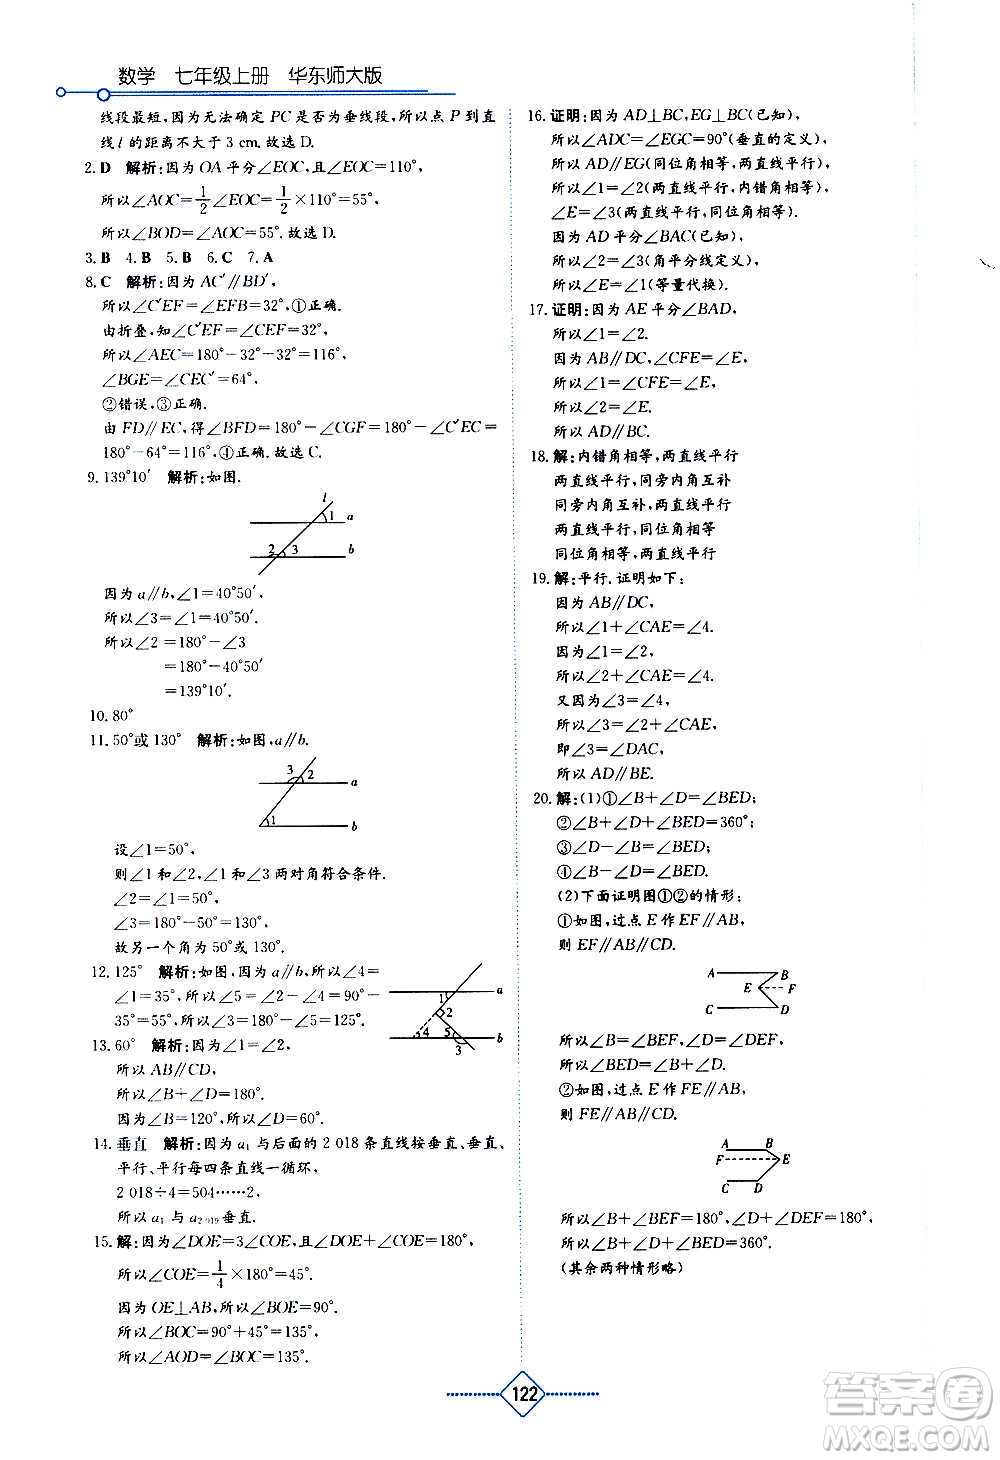 数学 七年级上册 华东师大版
线段最短,因为无法确定 PC 是否为垂线段,所以点 P 到直
线 l 的距离不大于 3 cm.故选 D.
2. D 解析:因为 OA 平分∠EOC,且∠EOC=110°,
所以∠AOC=1/2∠EOC=1/2×110°=55°,
所以∠BOD=∠AOC=55°.故选 D.
3. B 4. B 5. B 6. C 7. A
8. C 解析:因为 AC′∥BD′,
所以∠C′EF=∠EFB=32°,①正确.
由折叠,知∠C′EF=∠CEF=32°,
所以∠AEC=180°-32°-32°=116°,
∠BGE=∠CEC′=64°.
②错误,③正确.
由 FD∥EC,得∠BFD=180°-∠CGF=180°-∠C′EC=
180°-64°=116°,④正确.故选 C.
9. 139°10′ 解析:如图.
l
1 a
2 3 b
因为 a∥b,∠1=40°50′,
所以∠3=∠1=40°50′.
所以∠2=180°-∠3
=180°-40°50′
=139°10′.
10. 80°
11. 50°或 130° 解析:如图,a∥b.
3 2
a
1
b
设∠1=50°,
则∠1 和∠2,∠1 和∠3 两对角符合条件.
∠2=∠1=50°,
∠3=180°-50°=130°,
故另一个角为 50°或 130°.
12. 125° 解析:如图,因为 a∥b,所以∠4=
∠1=35°,所以∠5=∠2-∠4=90°-
35°=55°,所以∠3=180°-∠5=125°.
1 a
2
4 5 b
3
13. 60° 解析:因为∠1=∠2,
所以 AB∥CD,
所以∠B+∠D=180°,
因为∠B=120°,所以∠D=60°.
14. 垂直 解析:因为 a₁ 与后面的 2 018 条直线按垂直、垂直、
平行、平行每四条直线一循环,
2 018÷4=504……2,
所以 a₁ 与 a₂ ₀₁₉垂直.
15. 解:因为∠DOE=3∠COE,且∠DOE+∠COE=180°,
所以∠COE=1/4×180°=45°.
因为 OE⊥AB,所以∠BOE=90°.
所以∠BOC=90°+45°=135°,
所以∠AOD=∠BOC=135°.
16. 证明:因为 AD⊥BC,EG⊥BC(已知),
所以∠ADC=∠EGC=90°(垂直的定义),
所以 AD∥EG(同位角相等,两直线平行),
所以∠1=∠2(两直线平行,内错角相等),
∠E=∠3(两直线平行,同位角相等).
因为 AD 平分∠BAC(已知),
所以∠2=∠3(角平分线定义),
所以∠E=∠1(等量代换).
17. 证明:因为 AE 平分∠BAD,
所以∠1=∠2.
因为 AB∥DC,∠CFE=∠E,
所以∠1=∠CFE=∠E,
所以∠2=∠E.
所以 AD∥BC.
18. 解:内错角相等,两直线平行
两直线平行,同旁内角互补
同旁内角互补,两直线平行
两直线平行,同位角相等
同位角相等,两直线平行
19. 解:平行.证明如下:
因为 AB∥DC,
所以∠1+∠CAE=∠4.
因为∠1=∠2,
所以∠2+∠CAE=∠4.
又因为∠3=∠4,
所以∠3=∠2+∠CAE,
即∠3=∠DAC,
所以 AD∥BE.
20. 解:(1)①∠B+∠D=∠BED;
②∠B+∠D+∠BED=360°;
③∠D-∠B=∠BED;
④∠B-∠D=∠BED.
(2)下面证明图①②的情形:
①如图,过点 E 作 EF∥AB,
则 EF∥AB∥CD.
A B
E F
C D
所以∠B=∠BEF,∠D=∠DEF,
所以∠BED=∠B+∠D.
②如图,过点 E 作 FE∥AB,
则 FE∥AB∥CD.
A B
F E
C D
所以∠B+∠BEF=180°,∠D+∠DEF=180°,
所以∠B+∠D+∠BED=360°.
(其余两种情形略)
122
答案圈
MXQE.COM